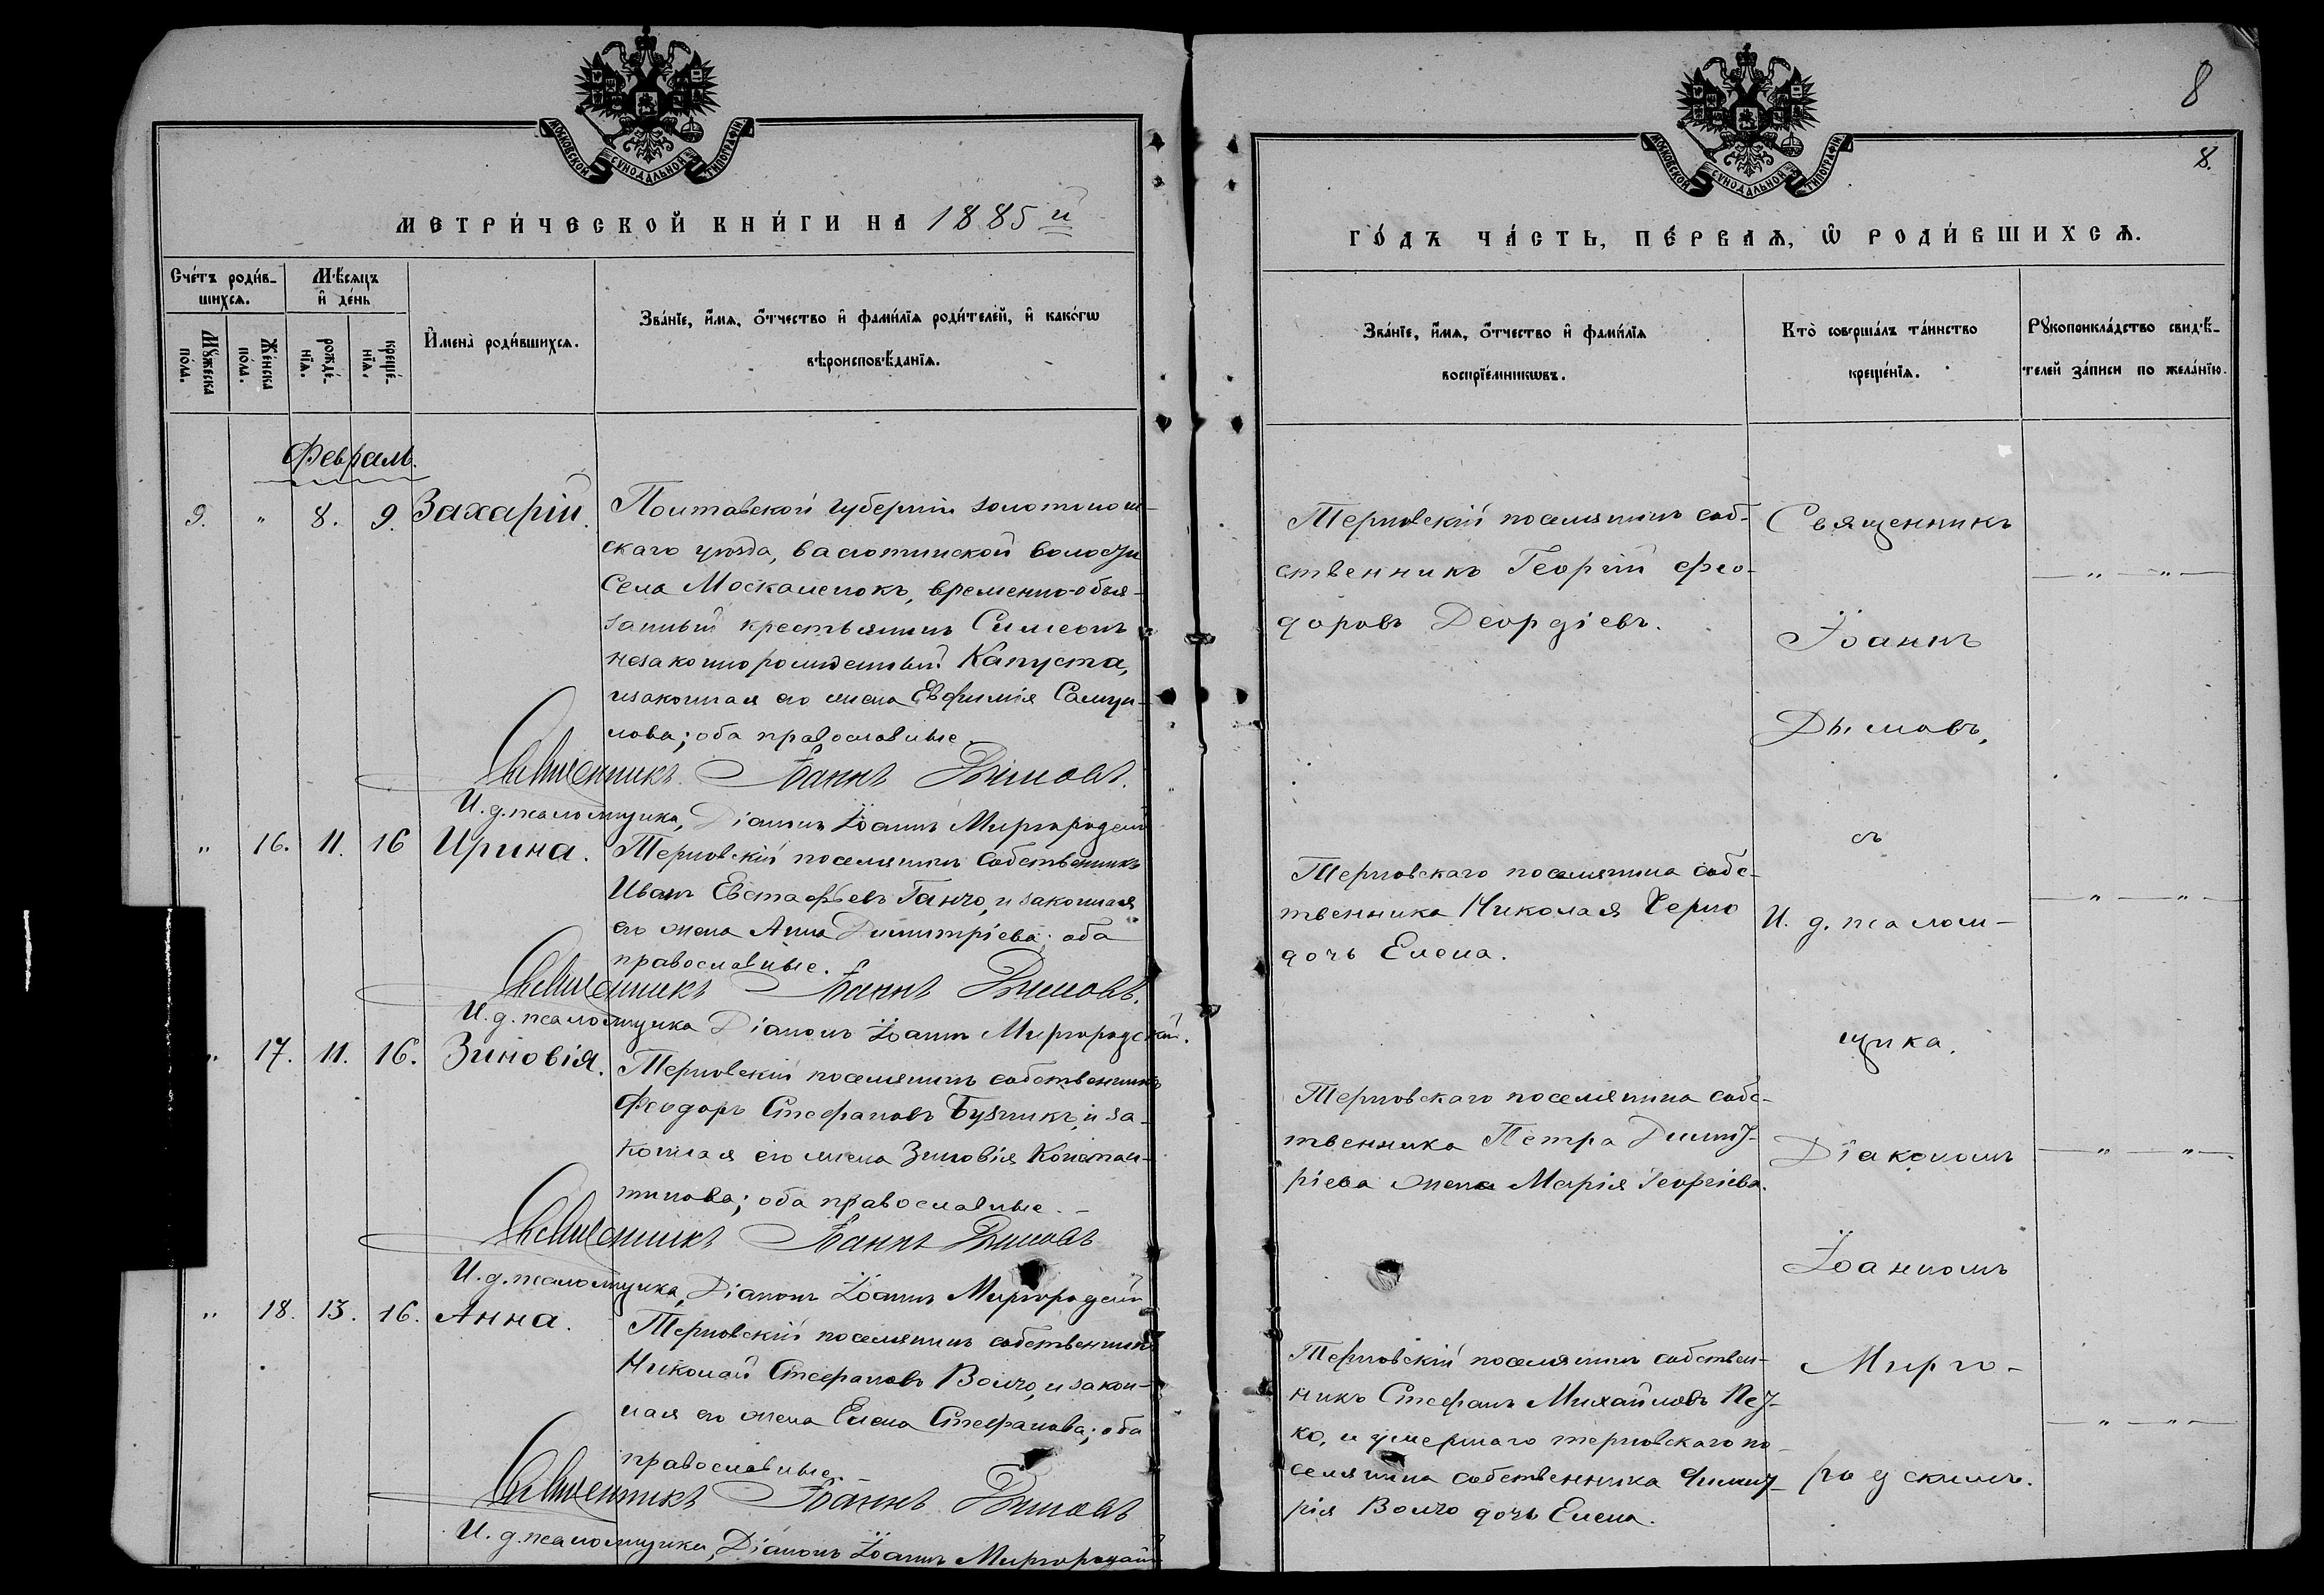 МОСКОВСКОЙ СѴНОДАЛЬНОЙ ТИПОГРАФІИ
МЕТРИ́ЧЕСКОЙ КНИ́ГИ НА 1885 й
Сче́тъ роди́в-
шихсѧ.
Мѣ́сѧцъ
и҆ де́нь
Мꙋ́жеска
по́ла.
Же́нска
по́ла.
рожде́-
нїѧ.
креще́-
нїѧ.
И҆мена̀ роди́вшихсѧ.
Зва́нїе, и҆́мѧ, ѻ҆́тчество и҆ фами́лїѧ роди́телей, и҆ како́гѡ
вѣроисповѣ́данїѧ.
Февраль.
9. " 8. 9. Захарій.
Полтавской губерніи золотонош-
скаго уѣзда, васютинской волости
села Москаленокъ, временно-обя-
занный крестьянинъ Симеонъ
незаконнорожденный Капуста,
и законная его жена Евфимія Самуи-
лова; оба православные.
Священникъ Іоаннъ Дымовъ.
И. д. псаломщика, Діаконъ Іоаннъ Миргородскій
" 16. 11. 16 Ирина.
Терновскій поселянинъ собственникъ
Иванъ Евстафьевъ Ганчо, и законная
его жена Анна Димитріева; оба
православные.
Священникъ Іоаннъ Дымовъ.
И. д. псаломщика Діаконъ Іоаннъ Миргородскій.
" 17. 11. 16. Зиновія.
Терновскій поселянинъ собственникъ
Феодоръ Стефановъ Бузникъ, и за-
конная его жена Зиновія Констан-
тинова; оба православные. -
Священникъ Іоаннъ Дымовъ
И. д. псаломщика, Діаконъ Іоаннъ Миргородскій
" 18. 13. 16. Анна.
Терновскій поселянинъ собственникъ
Николай Стефановъ Волчо, и закон-
ная его жена Елена Стефанова; оба
православные. -
Священникъ Іоаннъ Дымовъ
И. д. псаломщика, Діаконъ Іоаннъ Миргородскій
8
8.
МОСКОВСКОЙ СѴНОДАЛЬНОЙ ТИПОГРАФІИ
ГО́ДЪ ЧА́СТЬ, ПЕ́РВАѦ, Ѡ҆ РОДИ́ВШИХСѦ.
Зва́нїе, и҆́мѧ, ѻ҆́тчество и҆ фами́лїѧ
воспрїе́мникѡвъ.
Кто̀ соверша́лъ та́инство
креще́нїѧ.
Рꙋкоприкла́дство свидѣ́-
телей за́писи по жела́нїю.
Терновскій поселянинъ соб-
ственникъ Георгій Фео-
доровъ Деордіевъ.
Терновскаго поселянина собс-
твенника Николая Черно
дочь Елена.
Терновскаго поселянина собс-
твенника Петра Димит-
ріева жена Марія Георгіева.
Терновскій поселянинъ собствен-
никъ Стефанъ Михайловъ Пет-
ко, и умершаго терновскаго по-
селянина собственника Димит-
рія Волчо дочь Елена.
Священникъ
Іоаннъ
Дымовъ,
съ
И. д. псалом-
щика,
Діакономъ
Іоанномъ
Мирго-
родскимъ.
— " — " —
— " — " —
— " — " —
— " — " —